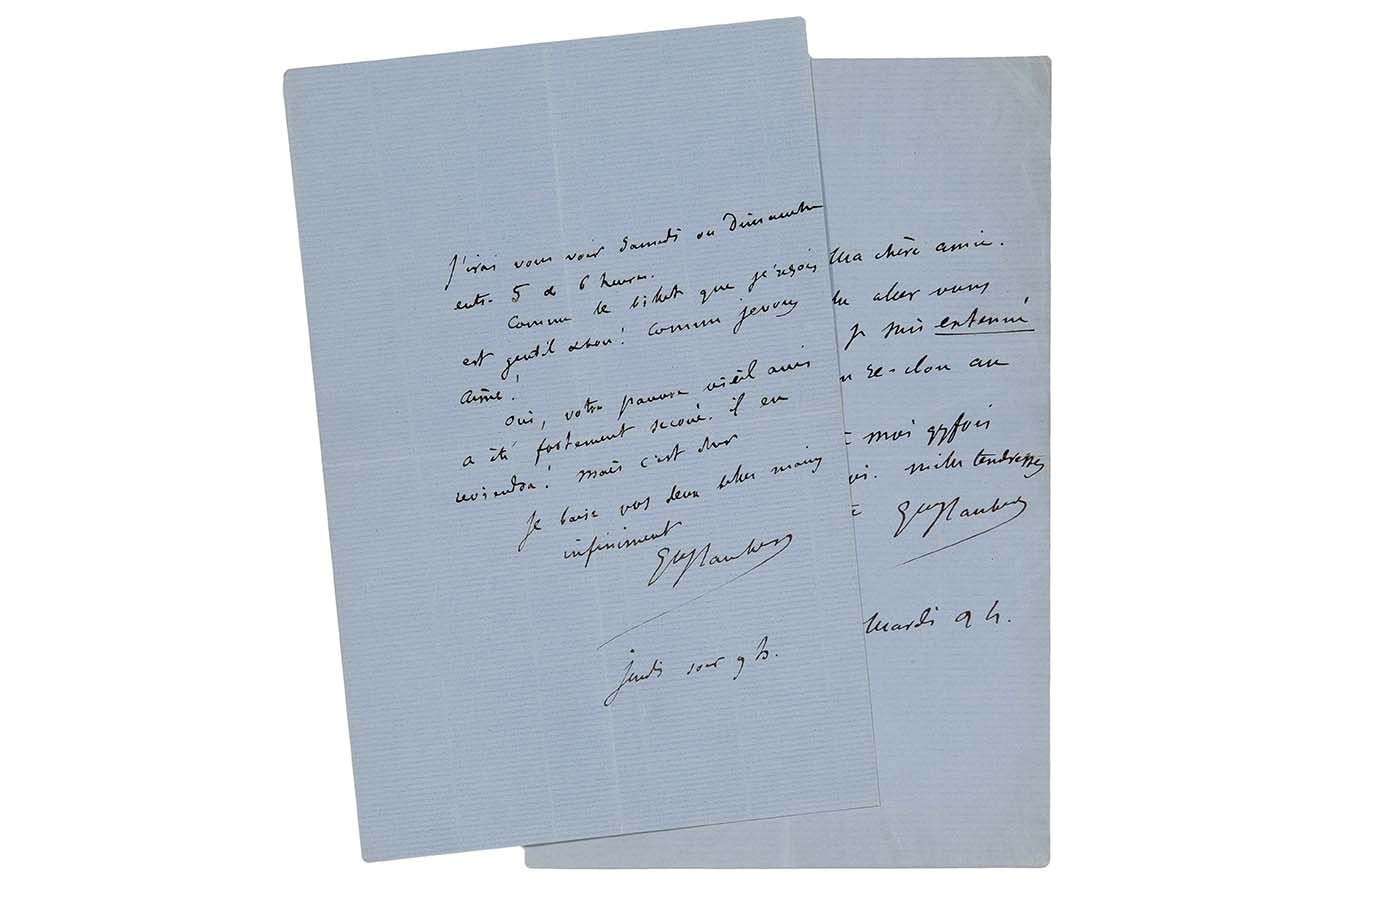 J'irai vous voir Samedi ou Dimanche
entre 5 & 6 heures.
Comme le billet que je reçois
est gentil & bon! Comme je vous
aime!
Oui, votre pauvre vieil ami
a été fortement secoué. il en
reviendra! mais c'est dur
Je baise vos deux belles mains
infiniment
GveFlaubert
jeudi soir 9 h.
Ma chère amie.
aller vous
je suis extenué
re-clou au
moi qqfois
milles tendresses
GveFlaubert
Mardi 9 h.